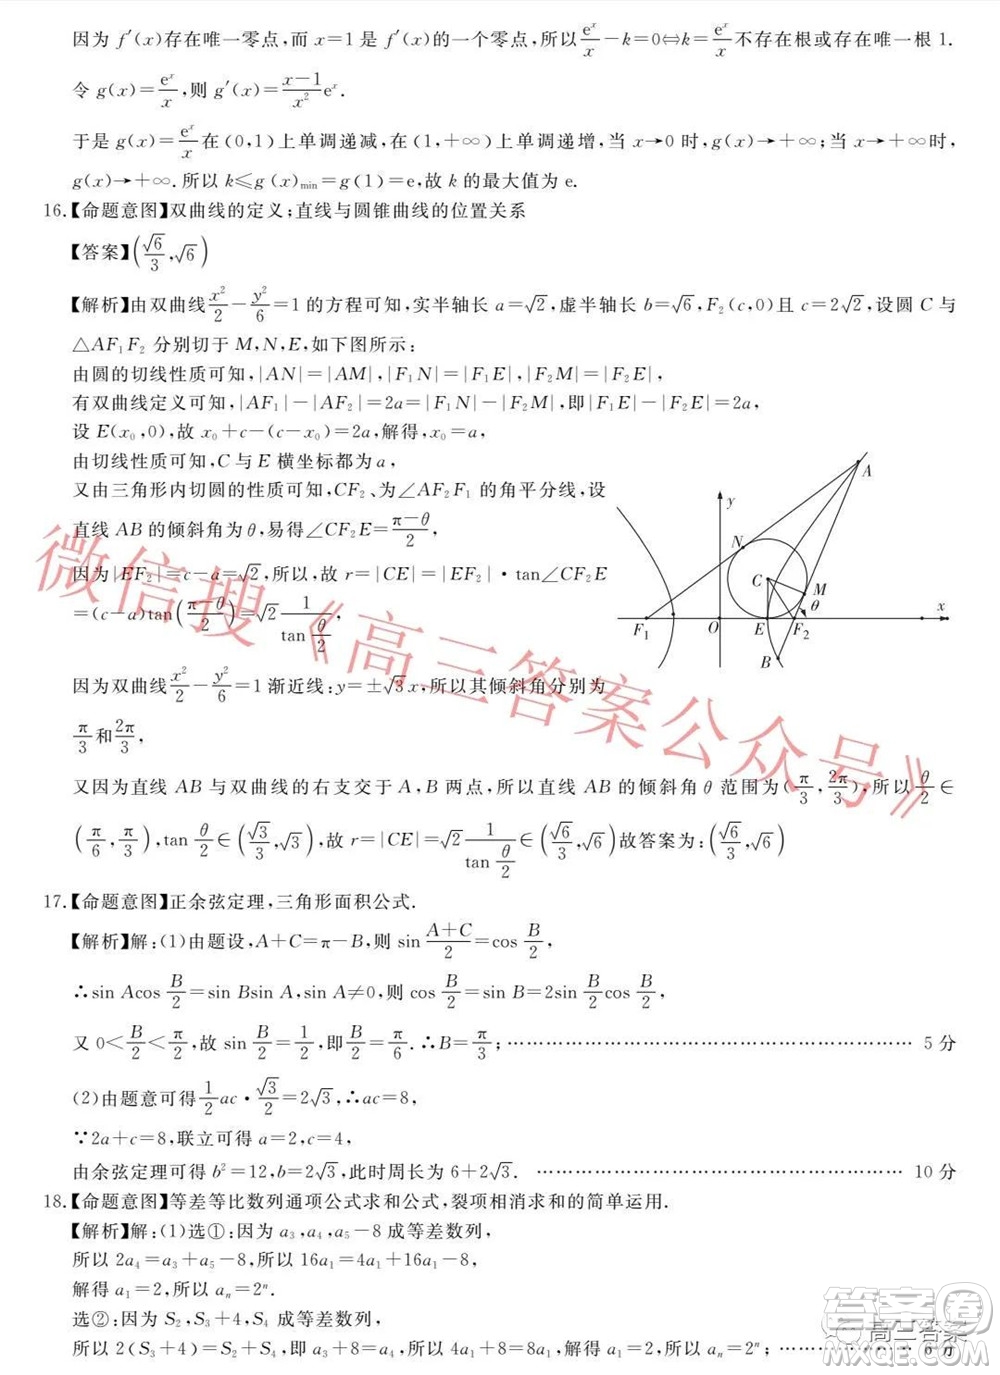 因为 f′(x)存在唯一零点,而 x=1 是 f′(x)的一个零点,所以 e^x/x −k=0⇔k= e^x/x 不存在根或存在唯一根 1.
令 g(x)= e^x/x,则 g′(x)= (x−1)/x² e^x.
于是 g(x)= e^x/x 在(0,1)上单调递减,在(1,+∞)上单调递增,当 x→0 时,g(x)→+∞;当 x→+∞时,
g(x)→+∞.所以 k≤g (x)min=g(1)=e,故 k 的最大值为 e.
16.【命题意图】双曲线的定义;直线与圆锥曲线的位置关系
【答案】(√6/3,√6)
【解析】由双曲线 x²/2 − y²/6 =1 的方程可知,实半轴长 a=√2,虚半轴长 b=√6,F₂(c,0)且 c=2√2,设圆 C 与
△AF₁F₂ 分别切于 M,N,E,如下图所示:
由圆的切线性质可知,|AN|=|AM|,|F₁N|=|F₁E|,|F₂M|=|F₂E|,
有双曲线定义可知,|AF₁|−|AF₂|=2a=|F₁N|−|F₂M|,即|F₁E|−|F₂E|=2a,
设 E(x₀,0),故 x₀+c−(c−x₀)=2a,解得,x₀=a,
由切线性质可知,C 与 E 横坐标都为 a,
又由三角形内切圆的性质可知,CF₂、为∠AF₂F₁ 的角平分线,设
直线 AB 的倾斜角为 θ,易得∠CF₂E= (π−θ)/2,
因为|EF₂|=c−a=√2,所以,故 r=|CE|=|EF₂|·tan∠CF₂E
=(c−a)tan((π−θ)/2)=√2 1/(tan θ/2),
因为双曲线 x²/2 − y²/6 =1 渐近线:y=±√3x,所以其倾斜角分别为
π/3 和 2π/3,
又因为直线 AB 与双曲线的右支交于 A,B 两点,所以直线 AB 的倾斜角 θ 范围为(π/3,2π/3),所以 θ/2 ∈
(π/6,π/3),tan θ/2 ∈(√3/3,√3),故 r=|CE|=√2 1/(tan θ/2) ∈(√6/3,√6)故答案为:(√6/3,√6)
A
y
N
C
M
θ
x
F₁
O
E
F₂
B
17.【命题意图】正余弦定理,三角形面积公式.
【解析】解:(1)由题设,A+C=π−B,则 sin (A+C)/2 =cos B/2,
∴sin Acos B/2 =sin Bsin A,sin A≠0,则 cos B/2 =sin B=2sin B/2 cos B/2,
又 0< B/2 < π/2,故 sin B/2 = 1/2,即 B/2 = π/6.∴B= π/3;………………………………………………………… 5 分
(2)由题意可得 1/2 ac· √3/2 =2√3,∴ac=8,
∵2a+c=8,联立可得 a=2,c=4,
由余弦定理可得 b²=12,b=2√3,此时周长为 6+2√3. ……………………………………………… 10 分
18.【命题意图】等差等比数列通项公式求和公式,裂项相消求和的简单运用.
【解析】解:(1)选①:因为 a₃,a₄,a₅−8 成等差数列,
所以 2a₄=a₃+a₅−8,所以 16a₁=4a₁+16a₁−8,
解得 a₁=2,所以 aₙ=2ⁿ.
选②:因为 S₂,S₃+4,S₄ 成等差数列,
所以 2(S₃+4)=S₂+S₄,即 a₃+8=a₄,所以 4a₁+8=8a₁,解得 a₁=2,所以 aₙ=2ⁿ;………………… 6 分
微信搜《高三答案公众号》
答案圈
高三答案